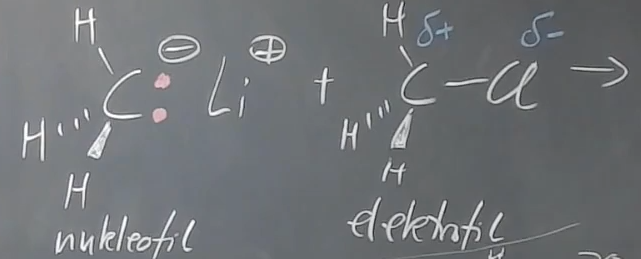 H H δ+ δ-
C ⊖ Li ⊕ + C — Cl →
H H
H H
nukleofil elektrofil